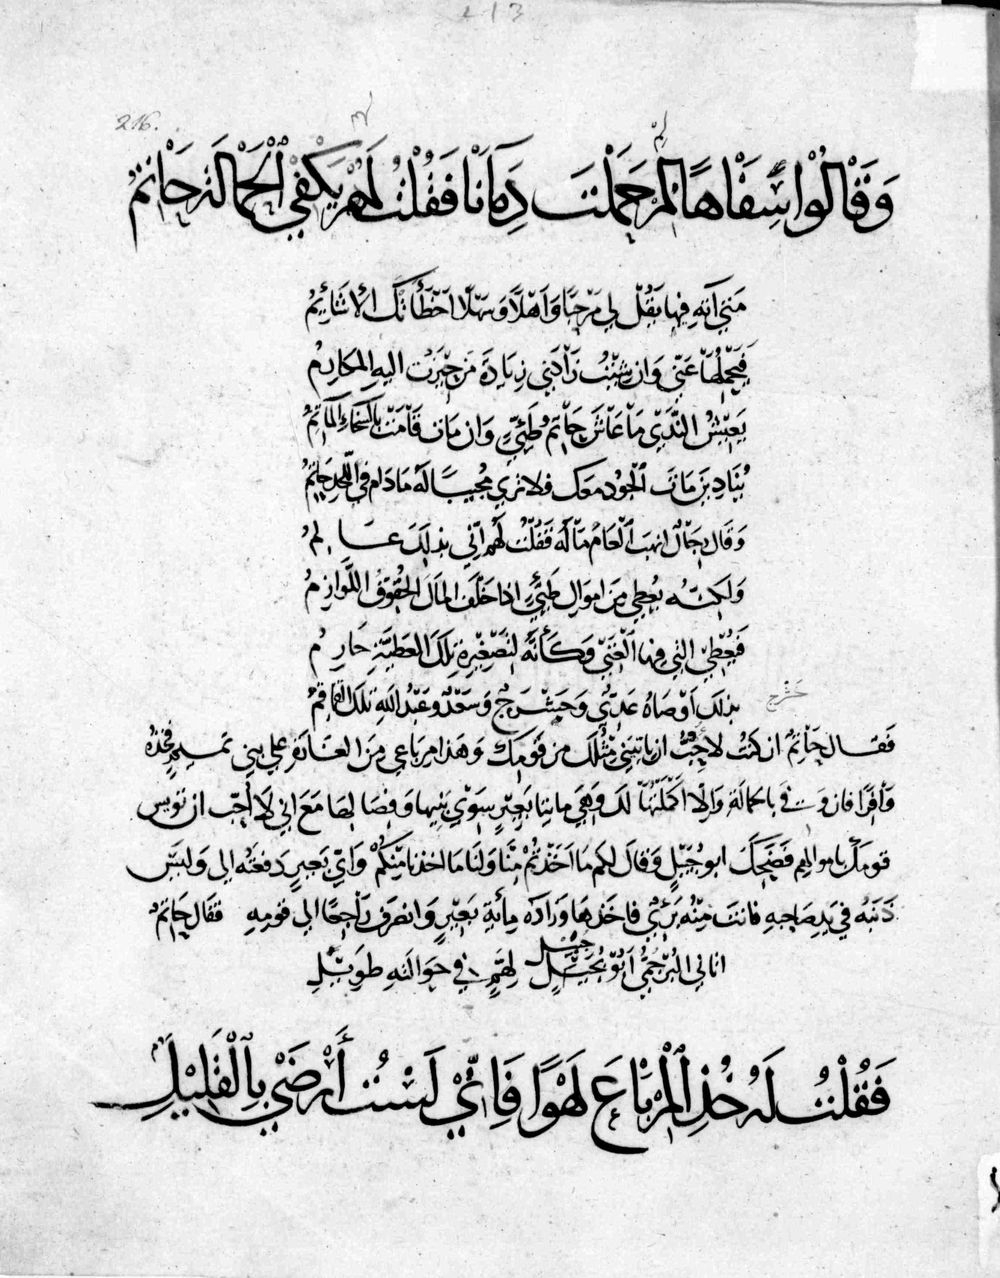 213
216.
وَقَالُوا سَفَاهًا لِمْ حَمَلْتَ دِمَاءَنَا فَقُلْتُ لَهُمْ يَكْفِي الْحَمَالَةَ حَاتِمُ
مَتَى آتِهِ فِيهَا يَقُلْ لِي مَرْحَبًا وَأَهْلًا وَسَهْلًا أَخْطَأَتْكَ الأَشَائِمُ
فَيَحْمِلُهَا عَنِّي وَإِنْ شِئْتُ زَادَنِي زِيَادَةَ مَنْ حِيزَتْ إِلَيْهِ الْمَكَارِمُ
يَعِيشُ النَّدَى مَا عَاشَ حَاتِمُ طَيِّئٍ وَإِنْ مَاتَ قَامَتْ بِالسَّخَاءِ الْمَآتِمُ
يُنَادِينَ مَاتَ الْجُودُ مَعَكَ فَلَا تَرَى مُجِيبًا لَهُ مَا دَامَ فِي اللَّحْدِ حَاتِمُ
وَقَالَ رِجَالٌ أَنْهَبَ الْعَامَ مَالَهُ فَقُلْتُ لَهُمْ إِنِّي بِذَلِكَ عَالِمُ
وَلَكِنَّهُ يُعْطِي مِنْ أَمْوَالِ طَيِّئٍ إِذَا حَلَقَ الْمَالَ الْحُقُوقُ اللَّوَازِمُ
فَيُعْطِي الَّتِي فِيهَا الْغِنَى وَكَأَنَّهُ لِتَصْغِيرِهِ تِلْكَ الْعَطِيَّةَ جَارِمُ
بِذَلِكَ أَوْصَاهُ عَدِيٌّ وَحَشْرَجٌ وَسَعْدٌ وَعَبْدُ اللَّهِ تِلْكَ الْقَمَاقِمُ
حشرج
فَقَالَ حَاتِمٌ إِنْ كُنْتُ لَأُحِبُّ أَنْ يَأْتِيَنِي مِثْلُكَ مِنْ قَوْمِكَ وَهَذَا مِرْبَاعِي مِنَ الْغَارَةِ عَلَى بَنِي تَمِيمٍ فَخُذْهُ
وَافِرًا فَإِنْ وَفَى بِالْحَمَالَةِ وَإِلَّا أَكْمَلْتُهَا لَكَ وَهِيَ مِائَتَا بَعِيرٍ سِوَى بَنِيهَا وَفِصَالِهَا مَعَ أَنِّي لَا أُحِبُّ أَنْ تُوبِسَ
قَوْمَكَ بِأَمْوَالِهِمْ فَضَحِكَ أَبُو جُبَيْلٍ وَقَالَ لَكُمْ مَا أَخَذْتُمْ مِنَّا وَلَنَا مَا أَخَذْنَا مِنْكُمْ وَأَيُّ بَعِيرٍ دَفَعْتَهُ إِلَيَّ وَلَيْسَ
ذَنَبُهُ فِي يَدِ صَاحِبِهِ فَأَنْتَ مِنْهُ بَرِيءٌ فَأَخَذَهَا وَزَادَهُ مِائَةَ بَعِيرٍ وَانْصَرَفَ رَاجِعًا إِلَى قَوْمِهِ فَقَالَ حَاتِمٌ
أَتَانِي الْبُرْجُمِيُّ أَبُو جُبَيْلٍ لِهَمٍّ فِي حَمَالَتِهِ طَوِيلِ
فَقُلْتُ لَهُ خُذِ الْمِرْبَاعَ لَهْوًا فَإِنِّي لَسْتُ أَرْضَى بِالْقَلِيلِ